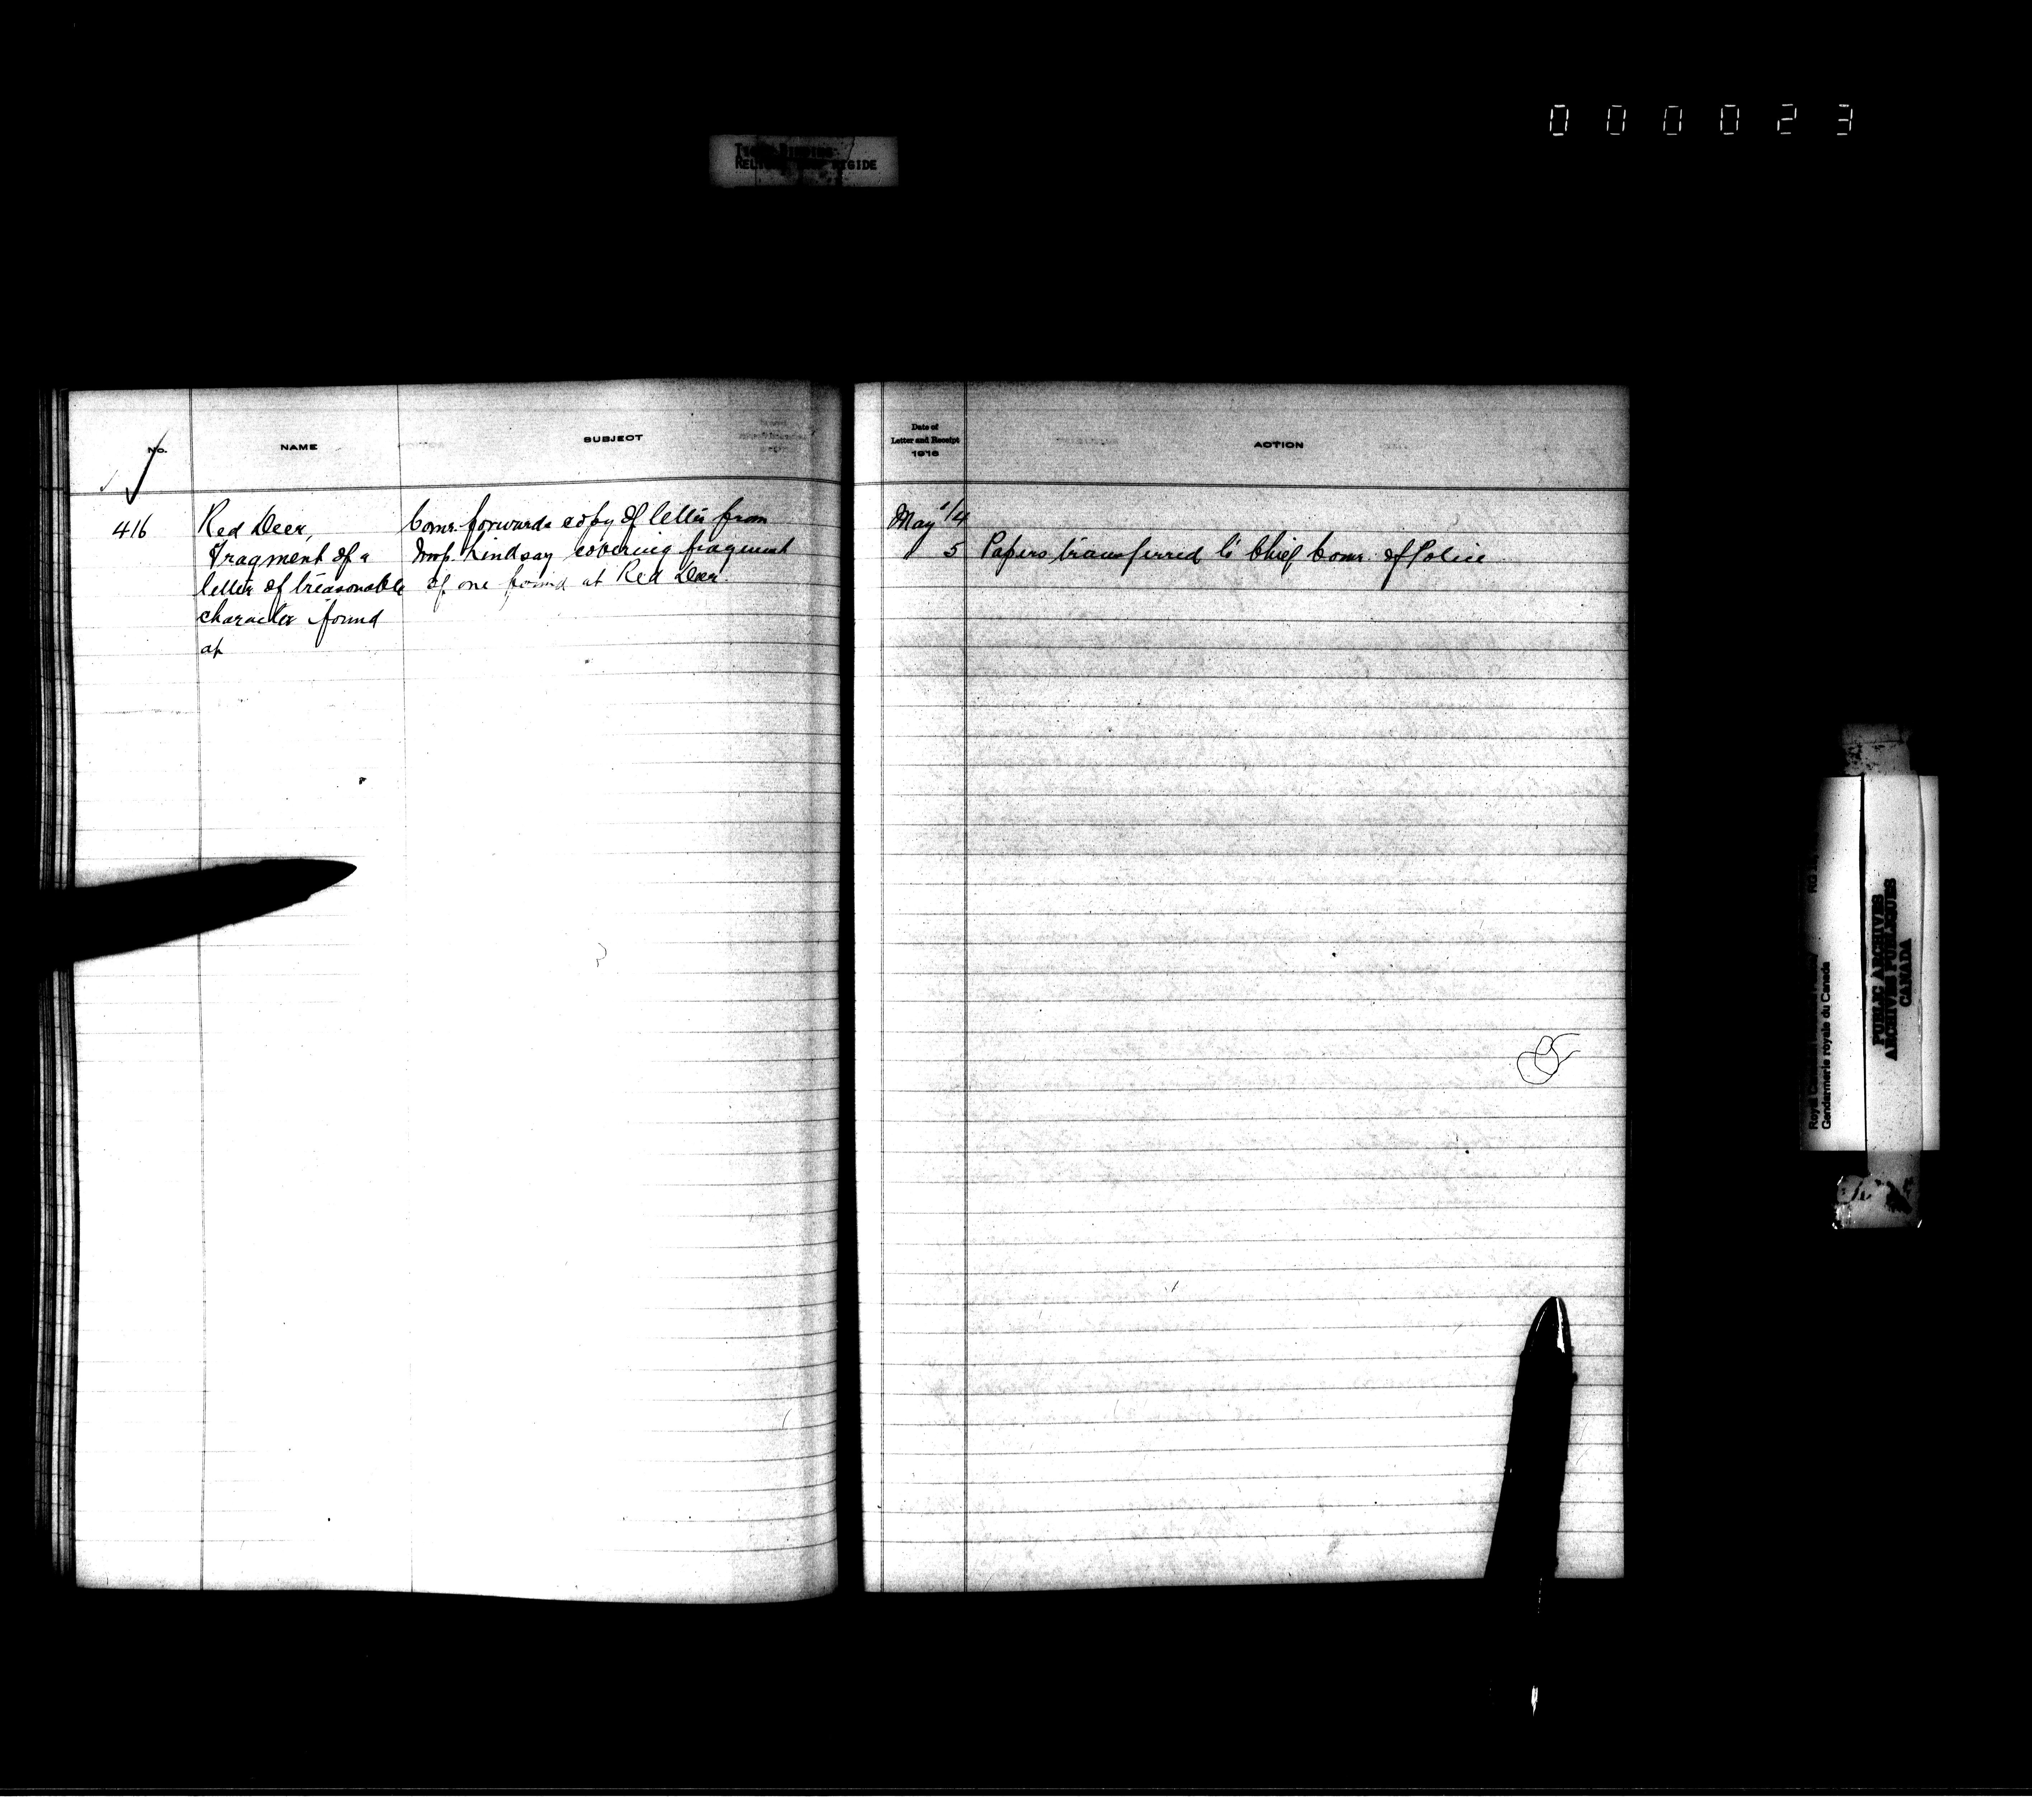 000023
RIGIDE
No.
NAME
SUBJECT
416
Red Deer,
Fragment of a
letter of treasonable
character found
at
Comr. forwards copy of letter from
Insp. Lindsay covering fragment
of one found at Red Deer.
Date of
Letter and Receipt
1916
ACTION
May 1/4
5 Papers transferred to Chief Comr. of Police
Royal
Gendarmerie royale du Canada
RG
PUBLIC ARCHIVES
ARCHIVES PUBLIQUES
CANADA